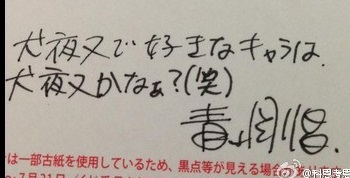 犬夜叉で好きなキャラは、
犬夜叉かなぁ?(笑)
青山剛昌
は一部古紙を使用しているため、黒点等が見える場合
7月21日